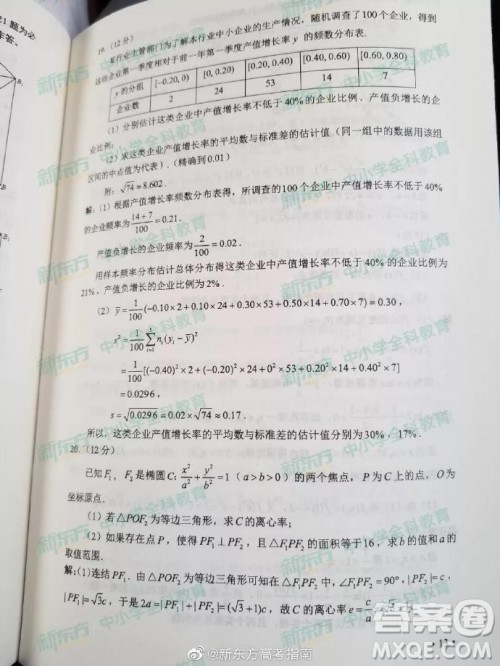 21题为必
作答.
19.(12分)
某行业主管部门为了解本行业中小企业的生产情况,随机调查了100个企业,得到
这些企业第一季度相对于前一年第一季度产值增长率y的频数分布表.
y的分组 [-0.20, 0) [0, 0.20) [0.20, 0.40) [0.40, 0.60) [0.60, 0.80)
企业数 2 24 53 14 7
(1)分别估计这类企业中产值增长率不低于40%的企业比例、产值负增长的企
业比例;
(2)求这类企业产值增长率的平均数与标准差的估计值(同一组中的数据用该组
区间的中点值为代表).(精确到0.01)
附:√74≈8.602.
解:(1)根据产值增长率频数分布表得,所调查的100个企业中产值增长率不低于40%
的企业频率为(14+7)/100=0.21.
产值负增长的企业频率为2/100=0.02.
用样本频率分布估计总体分布得这类企业中产值增长率不低于40%的企业比例为
21%,产值负增长的企业比例为2%.
(2) ȳ=1/100(-0.10×2+0.10×24+0.30×53+0.50×14+0.70×7)=0.30,
s²=1/100 ∑nᵢ(yᵢ-ȳ)²
=1/100[(-0.40)²×2+(-0.20)²×24+0²×53+0.20²×14+0.40²×7]
=0.0296,
s=√0.0296=0.02×√74≈0.17.
所以,这类企业产值增长率的平均数与标准差的估计值分别为30%,17%.
20.(12分)
已知F₁,F₂是椭圆C:x²/a²+y²/b²=1(a>b>0)的两个焦点,P为C上的点,O为
坐标原点.
(1)若△POF₂为等边三角形,求C的离心率;
(2)如果存在点P,使得PF₁⊥PF₂,且△F₁PF₂的面积等于16,求b的值和a的
取值范围.
解:(1)连结PF₁.由△POF₂为等边三角形可知在△F₁PF₂中,∠F₁PF₂=90°,|PF₂|=c,
|PF₁|=√3c,于是2a=|PF₁|+|PF₂|=(√3+1)c,故C的离心率e=c/a
@新东方高考指南
答案圈
新东方 中小学全科教育